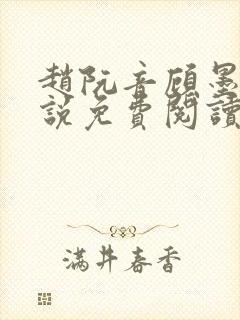 趙阮音顧墨
說免費閱讀
滿井春香